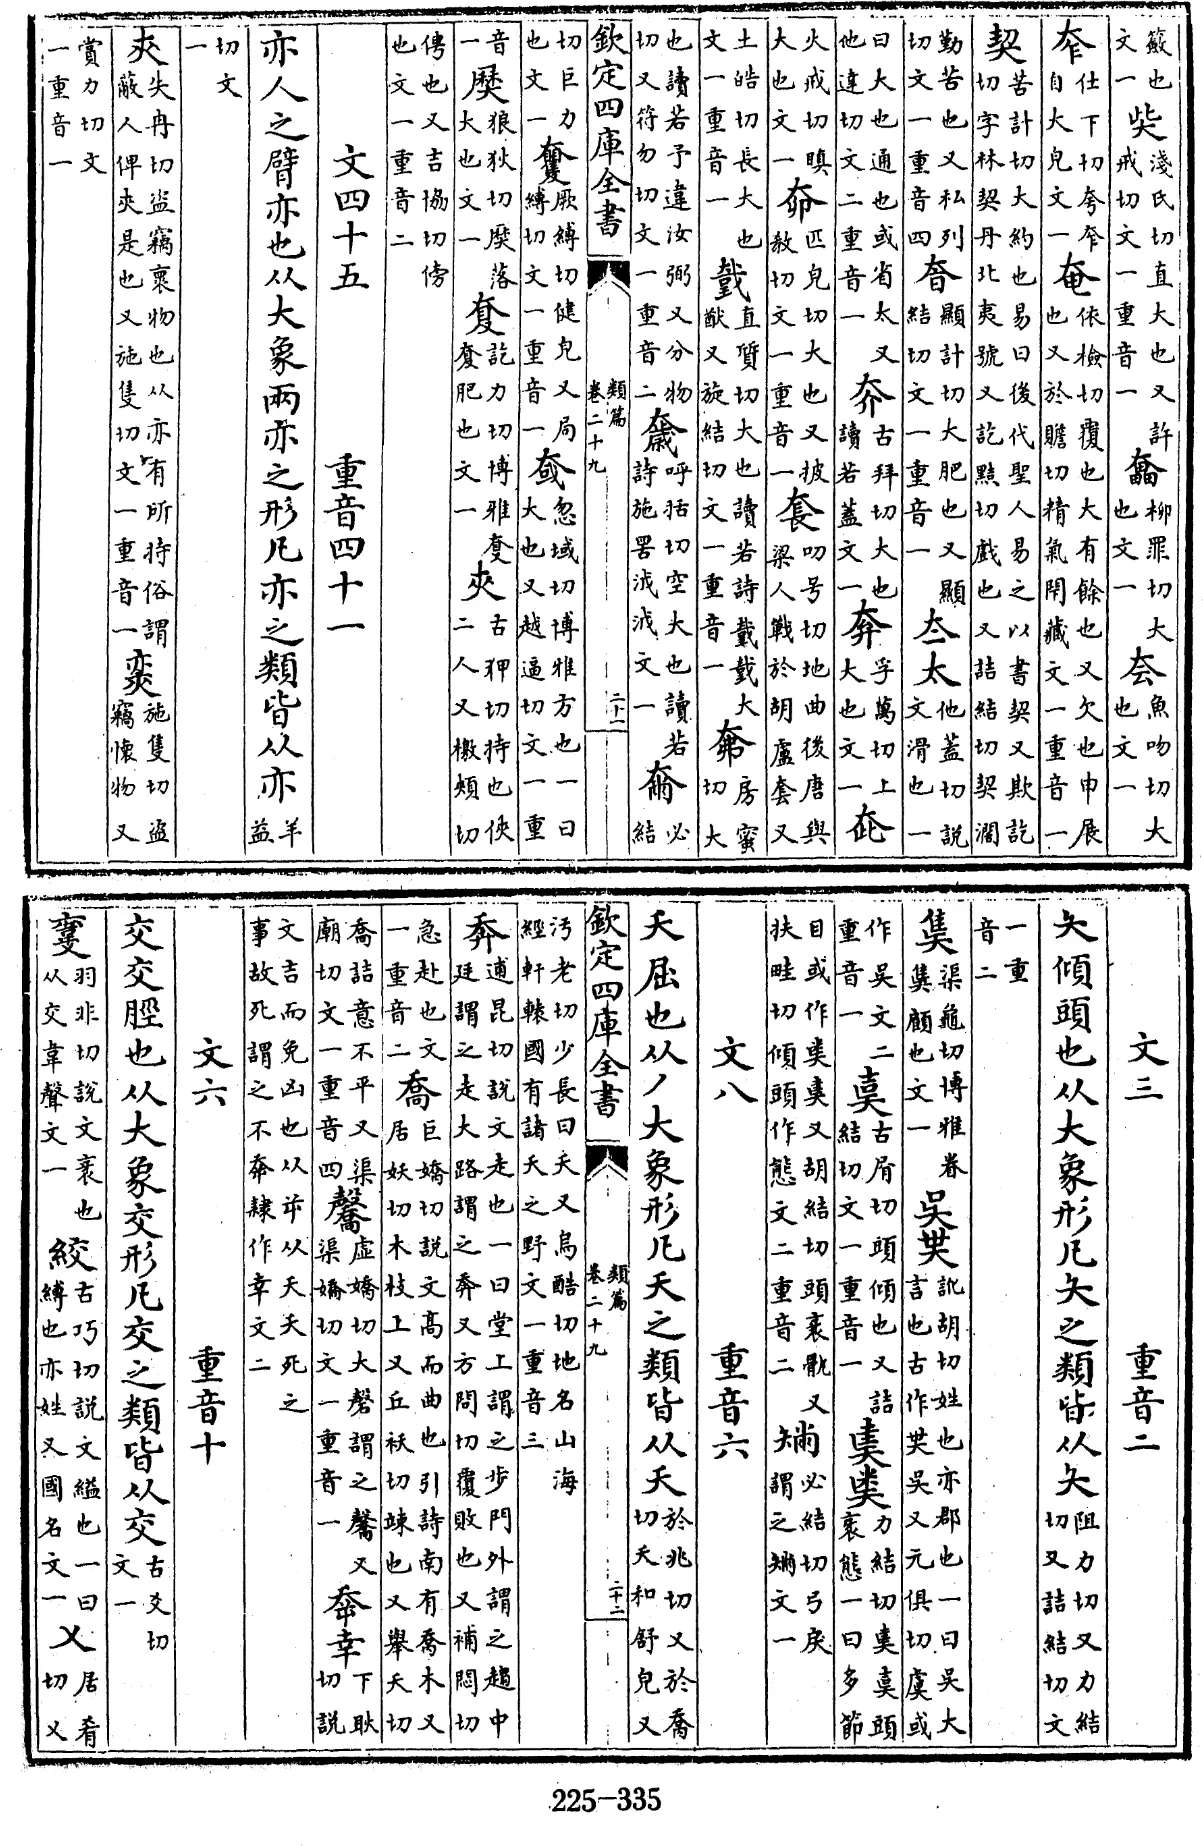 籢也文一 淺氏切直大也又許戒切文一重音一 柳罪切大也文一 魚吻切大也文一
仕下切夸自大皃文一奄依檢切覆也大有餘也又欠也申展也又於贍切精氣閉藏文一重音一
契苦計切大約也易曰後代聖人易之以書契又欺訖切字林契丹北夷號又訖黠切戲也又詰結切契濶
勤苦也又私列切文一重音四 顯計切大肥也又顯結切文一重音一夳太他蓋切說文滑也一
曰大也通也或省太又他達切文二重音一 古拜切大也讀若蓋文一 孚萬切上大也文一
火戒切瞋大也文一奅匹皃切大也又披教切文一重音一套叨号切地曲後唐與梁人戰於胡盧套又
土皓切長大也文一重音一 直質切大也讀若詩大猷又旋結切文一重音一 房蜜切大
也讀若予違汝弼又分物切又符勿切文一重音二奯呼括切空大也讀若詩施罟泧泧文一 必結
欽定四庫全書 類篇卷二十九 二十一
切巨力也文一 厥縛切健皃又局縛切文一重音一 忽域切博雅方也一曰大也又越逼切文一重
音一 狼狄切落大也文一 訖力切博雅肥也文一夾古狎切持也俠二人又檄頰切
傳也又吉協切傍也文一重音二
文四十五 重音四十一
亦人之臂亦也从大象兩亦之形凡亦之類皆从亦羊益
切文一
㚒失冉切盜竊褱物也从亦有所持俗謂蔽人俾㚒是也又施隻切文一重音一 施隻切盜竊懷物又
賞力切文一重音一
文三 重音二
夨傾頭也从大象形凡夨之類皆从夨阻力切又力結切又詰結切文
一重音二
渠龜切博雅㷼顧也文一吳訛胡切姓也亦郡也一曰吳大言也古作吳又元俱切虞或
作吳文二重音一 古屑切頭傾也又詰結切文一重音一 力結切頭衺態一曰多節
目或作又胡結切頭衺骫又扶畦切傾頭作態文二重音二 必結切弓戾謂之文一
文八 重音六
夭屈也从丿大象形凡夭之類皆从夭於兆切又於喬切夭和舒皃又
欽定四庫全書 類篇卷二十九 二十二
汚老切少長曰夭又烏酷切地名山海經軒轅國有諸夭之野文一重音三
奔逋昆切說文走也一曰堂上謂之步門外謂之趨中廷謂之走大路謂之奔又方問切覆敗也又補悶切
急赴也文一重音二喬巨嬌切說文高而曲也引詩南有喬木又居妖切木枝上又丘祅切竦也又舉夭切
喬詰意不平又渠廟切文一重音四 虛嬌切大磬謂之又渠嬌切文一重音一 幸下耿切說
文吉而免凶也从屰从夭夭死之事故死謂之不㚔隸作幸文二
文六 重音十
交交脛也从大象交形凡交之類皆从交古爻切文一
羽非切說文衺也从交韋聲文一絞古巧切說文縊也一曰縛也亦姓又國名文一㐅居肴切㐅